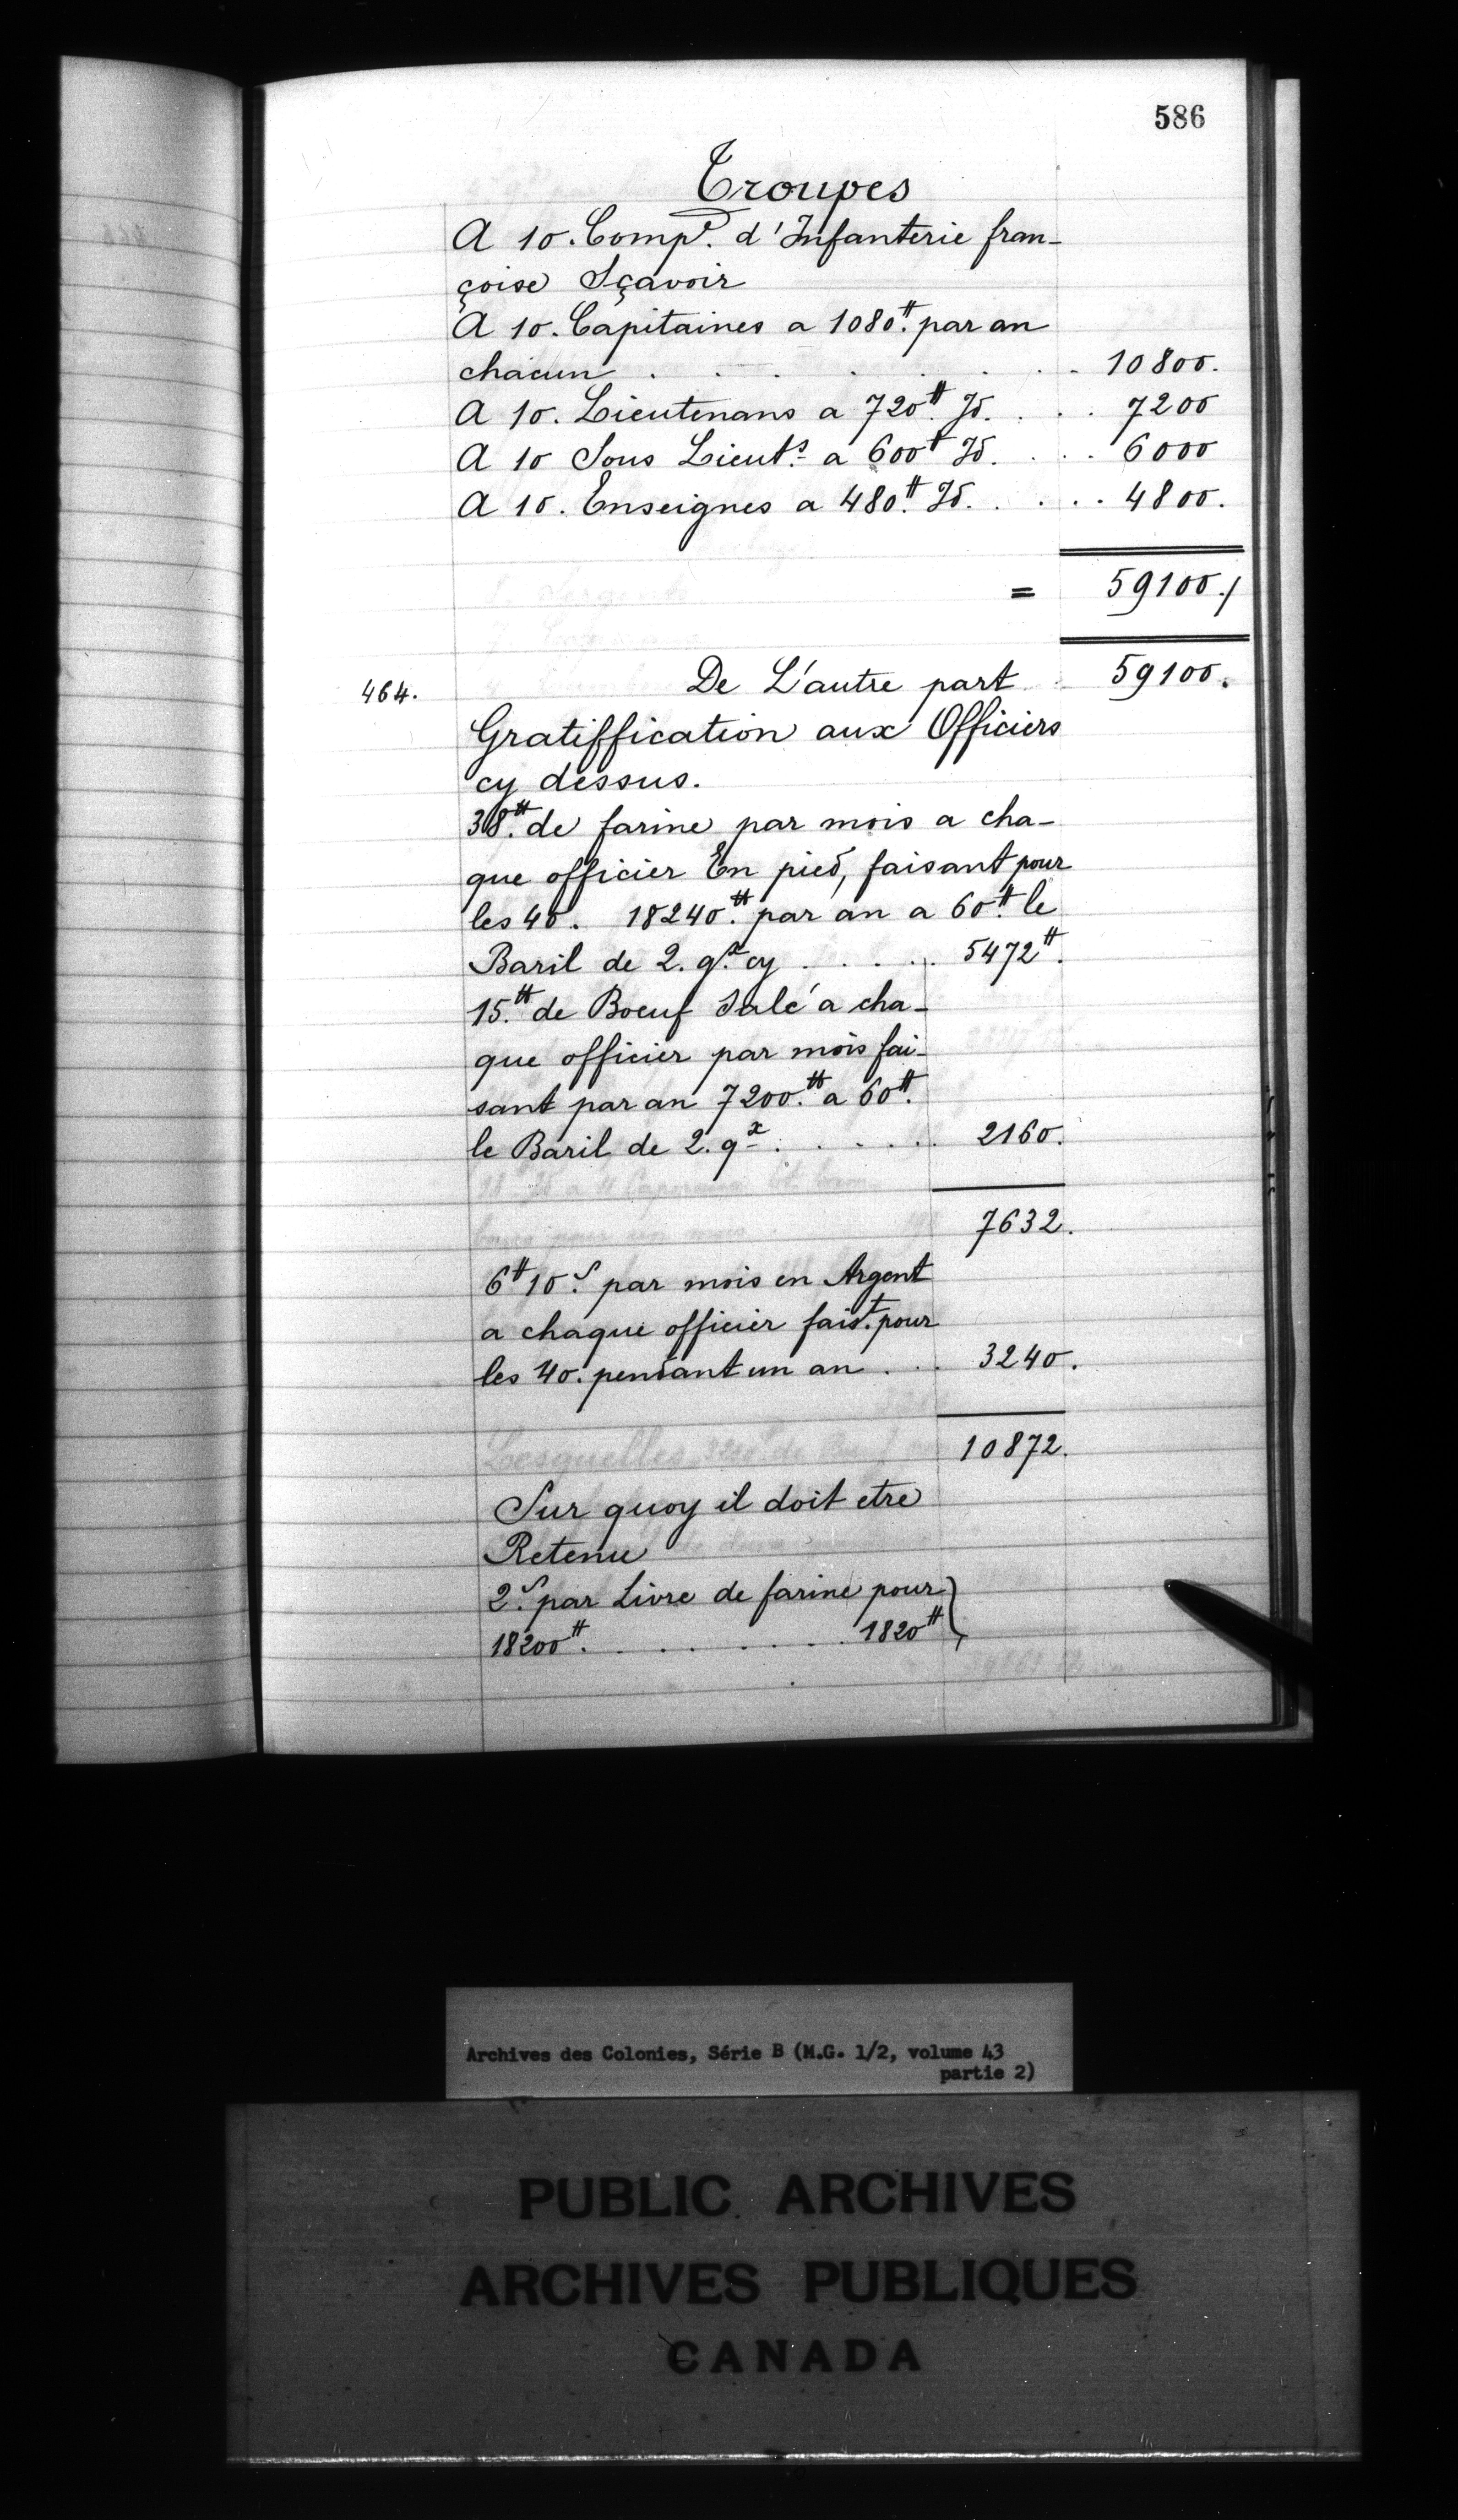 586
Troupes
A 10. Comp.e d'Infanterie fran-
çoise Sçavoir
A 10. Capitaines a 1080.tt par an
chacun . . . . . . . . 10800.
A 10. Lieutenans a 720.tt Id. . . . 7200
A 10 Sous Lieut.s a 600tt Id. . . . 6000
A 10. Enseignes a 480.tt Id. . . . . 4800.
= 59100./
464. De L'autre part 59100.
Gratiffication aux Officiers
cy dessus.
38.tt de farine par mois a cha-
que officier En pied, faisant pour
les 40. 18240.tt par an a 60.tt le
Baril de 2. q.x cy . . . . . 5472tt.
15.tt de Boeuf Salé a cha-
que officier par mois fai-
sant par an 7200.tt a 60tt.
le Baril de 2. qx . . . . . 2160.
7632.
6tt 10.s par mois en Argent
a chaque officier fais.t pour
les 40. pendant un an . . . 3240.
10872.
Sur quoy il doit etre
Retenu
2.s par Livre de farine pour }
18200tt. . . . . . . . 1820tt
Archives des Colonies, Série B (M.G. 1/2, volume 43
partie 2)
PUBLIC ARCHIVES
ARCHIVES PUBLIQUES
CANADA